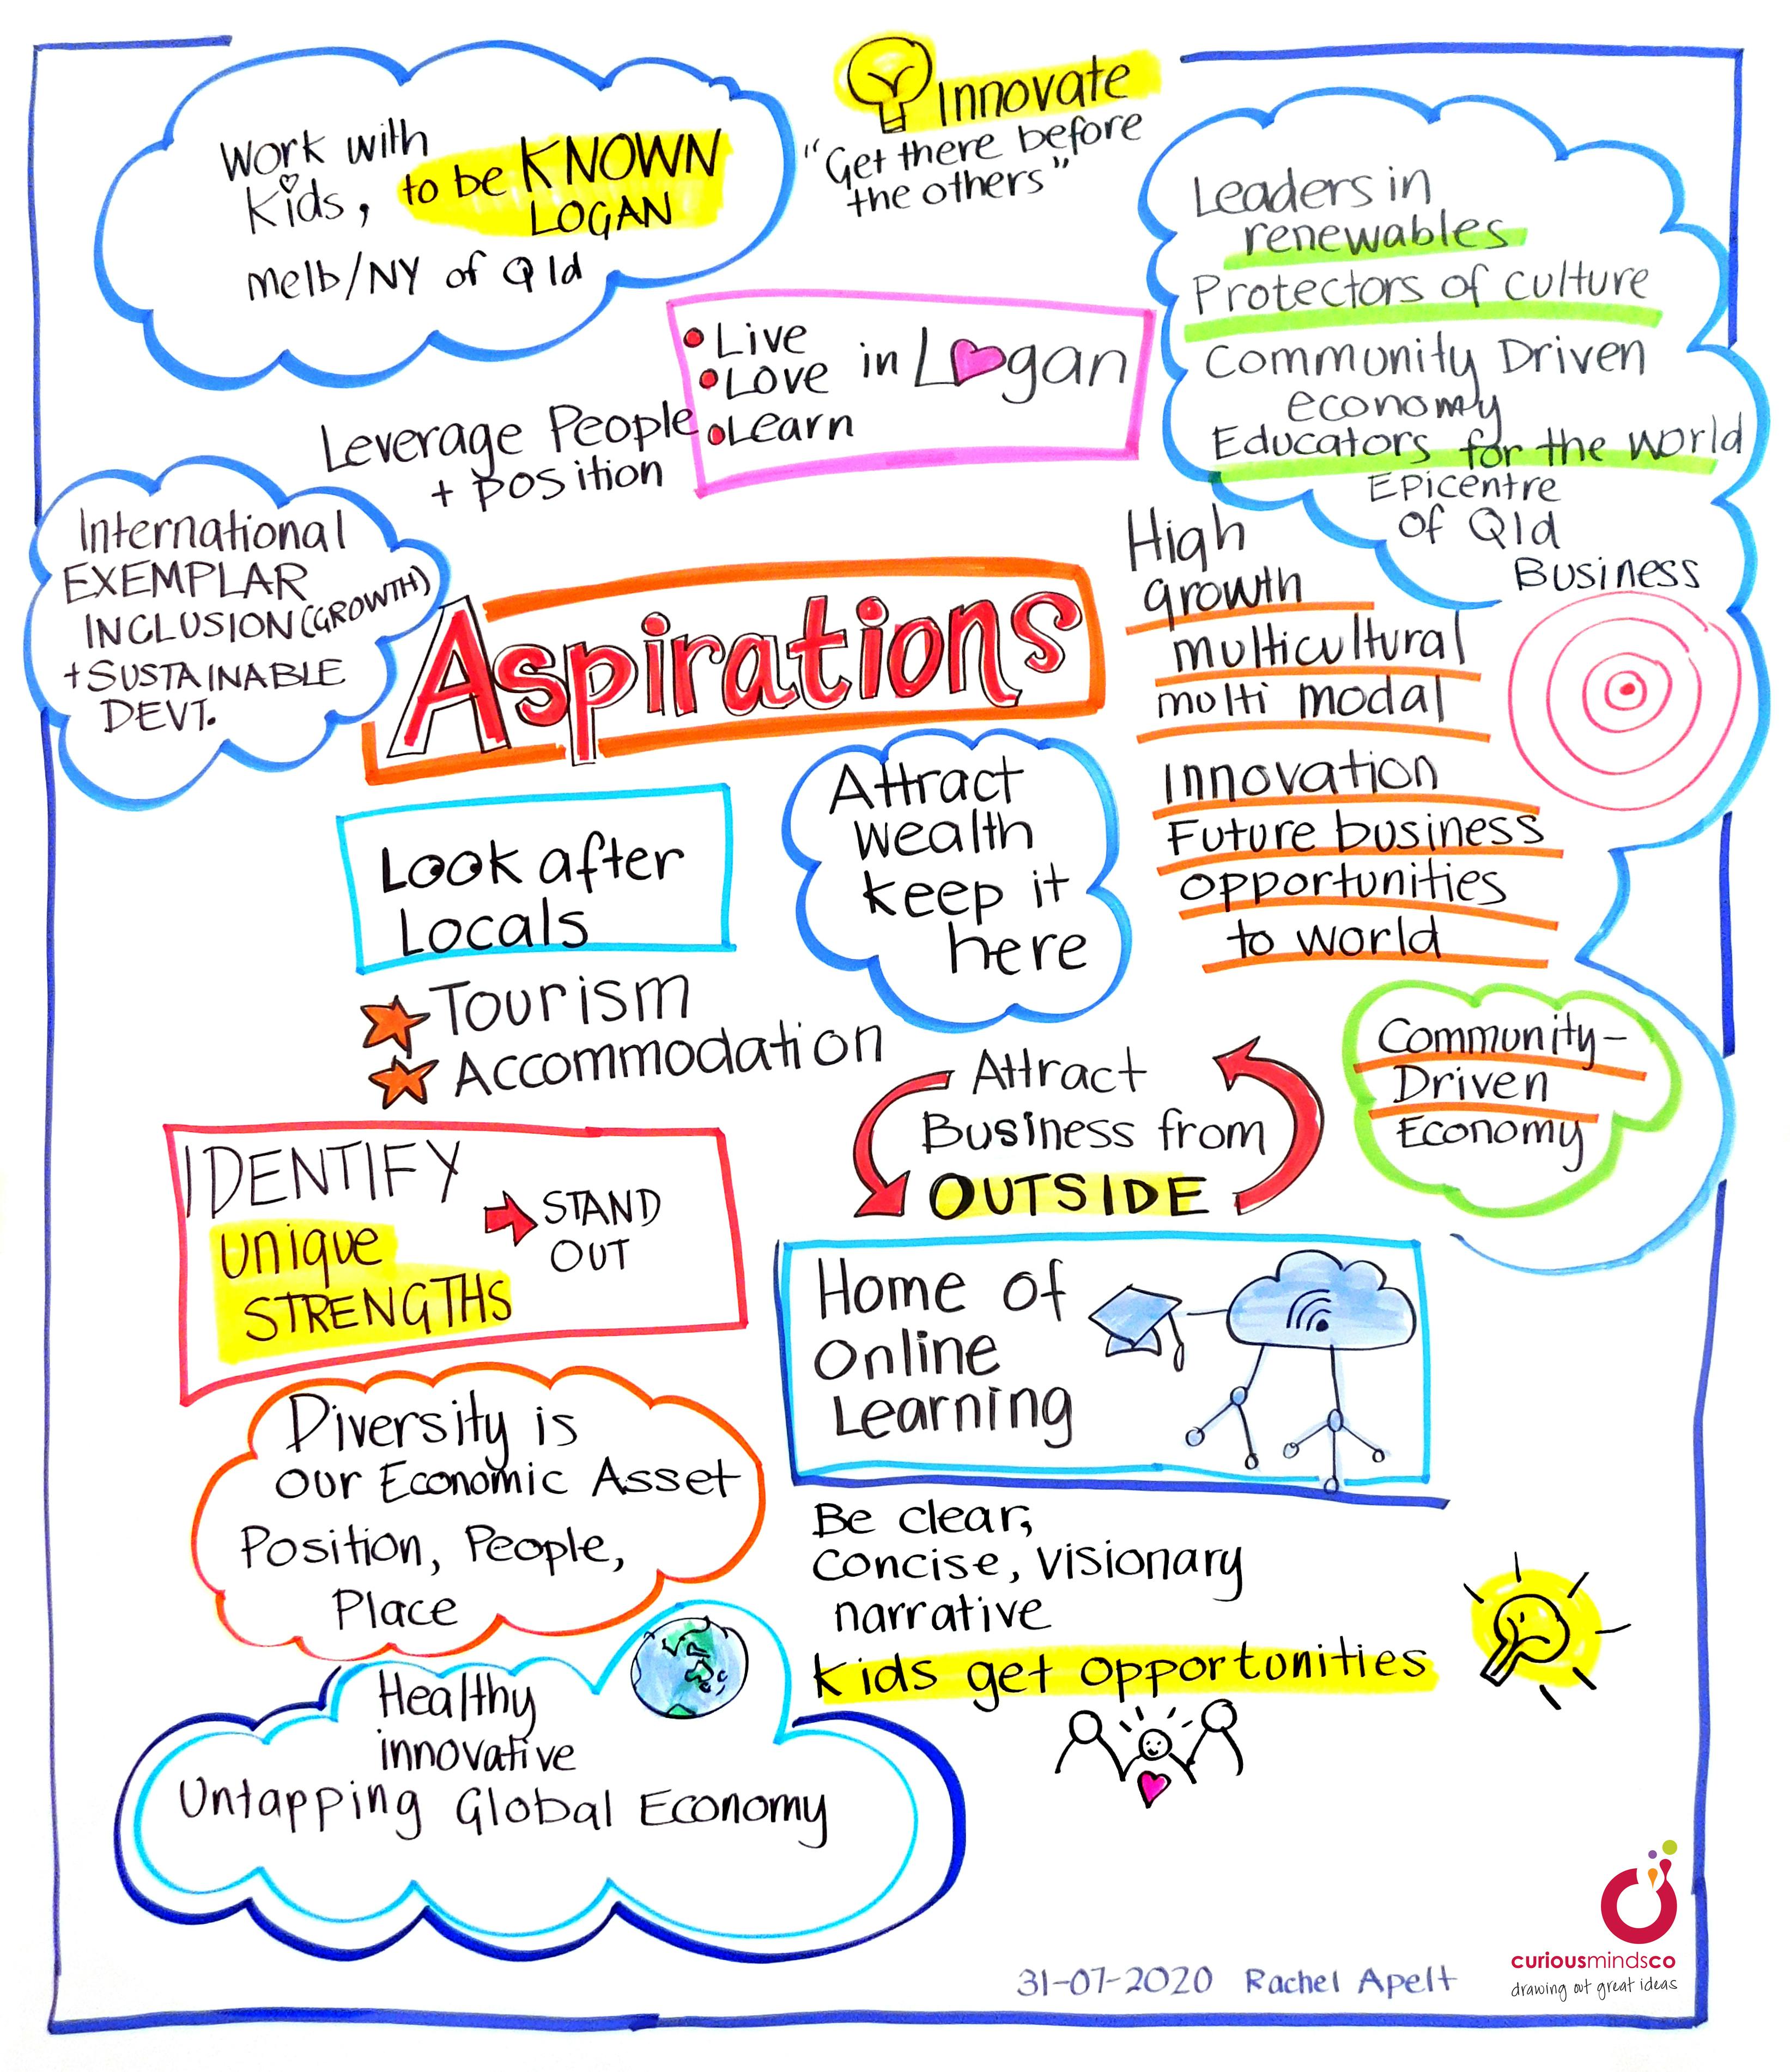 Work with
Kids, to be KNOWN
LOGAN
Melb/NY of Qld
Innovate
"Get there before
the others"
Leaders in
renewables
Protectors of culture
Community Driven
economy
Educators for the world
Epicentre
of Qld
Business
• Live
• Love in Logan
• Learn
Leverage People
+ position
International
EXEMPLAR
INCLUSION (GROWTH)
+ SUSTAINABLE
DEVT.
Aspirations
High
growth
multicultural
multi modal
Innovation
Future business
opportunities
to world
Look after
Locals
Tourism
Accommodation
Attract
wealth
keep it
here
Attract
Business from
OUTSIDE
Community-
Driven
Economy
IDENTIFY
unique
STRENGTHS
STAND
OUT
Home of
Online
Learning
Diversity is
our Economic Asset
Position, People,
Place
Be clear,
concise, visionary
narrative
kids get opportunities
Healthy
innovative
Untapping Global Economy
31-07-2020 Rachel Apelt
curiousmindsco
drawing out great ideas